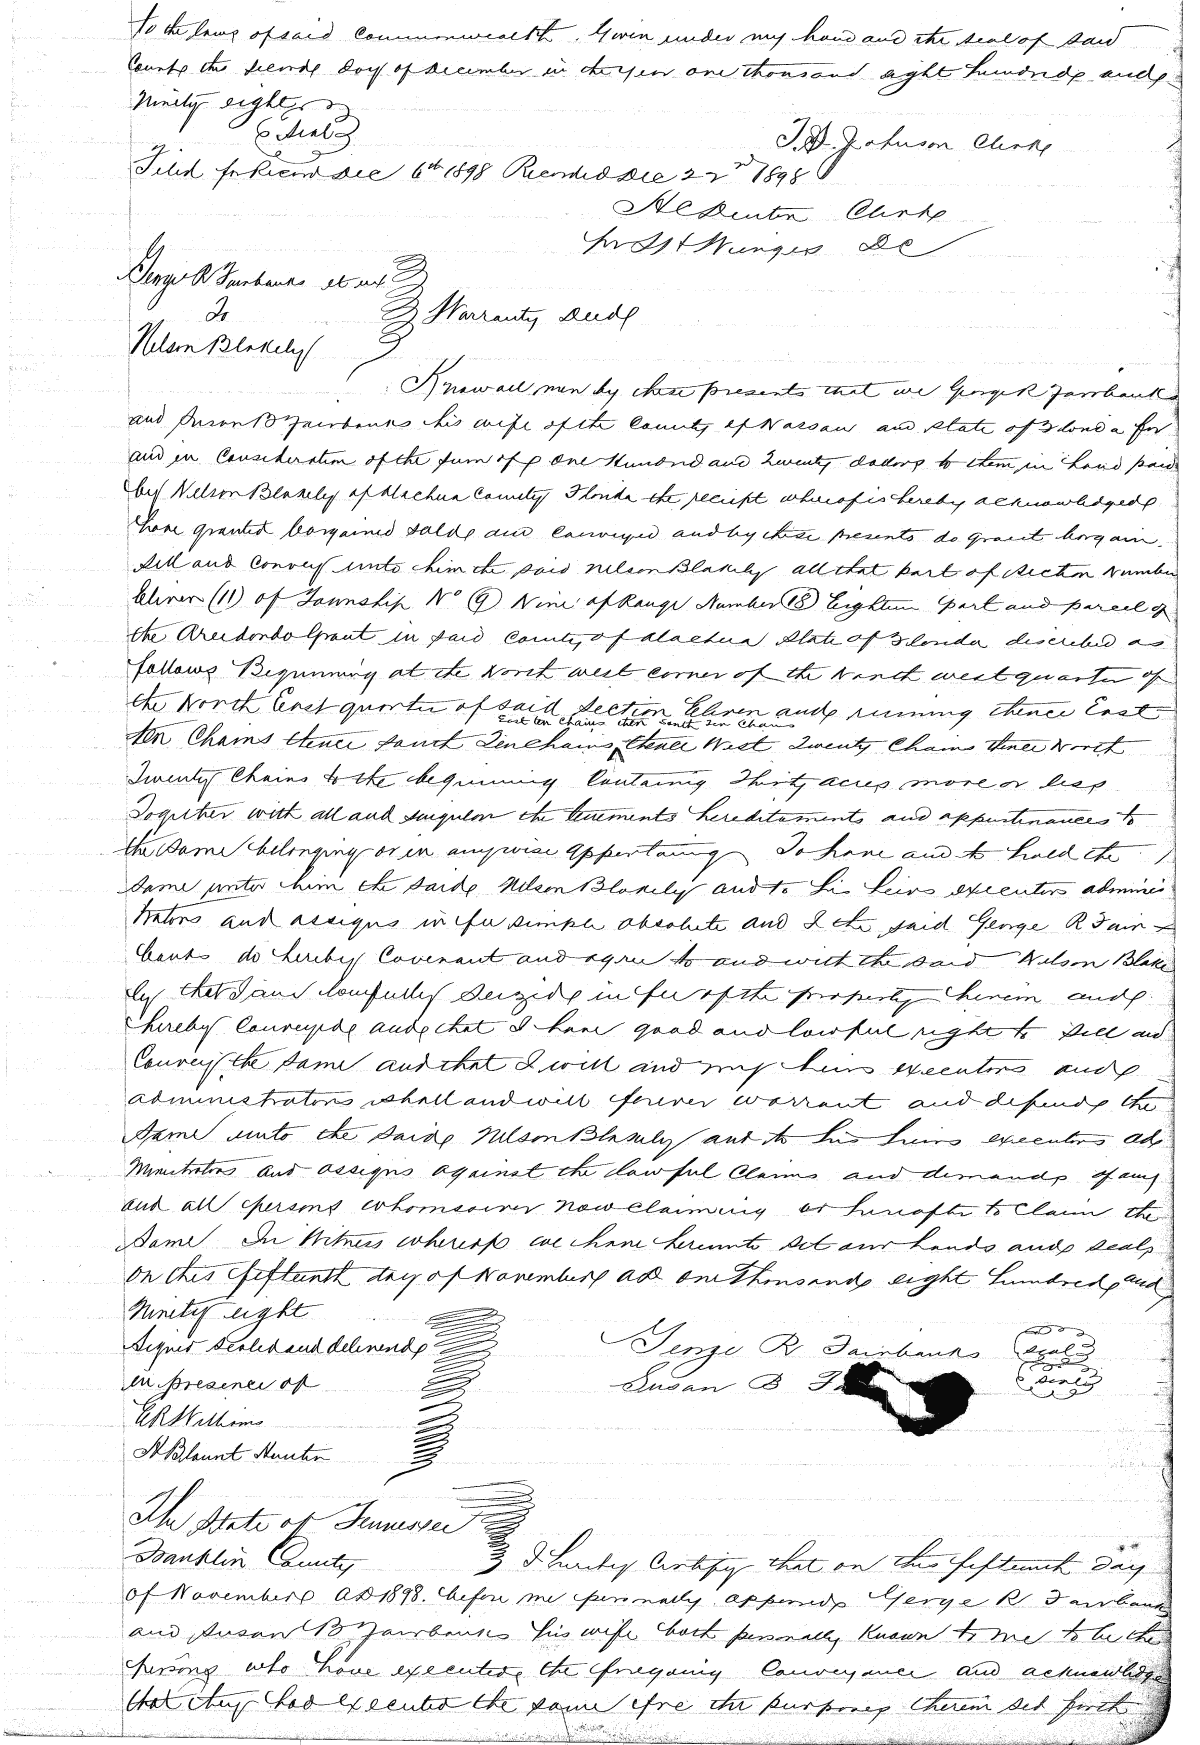 to the laws of said Commonwealth. Given under my hand and the seal of said
County the second day of December in the year one thousand eight hundred and
Ninety eight
Seal
T. D. Johnson Clerk
Filed for Record Dec 6th 1898 Recorded Dec 22nd 1898
H C Denton Clerk
DC
George R Fairbanks et ux
To
Warranty Deed
Nelson Blakely
Know all men by these presents that we George R Fairbanks
and Susan B Fairbanks his wife of the County of Nassau and State of Florida for
and in Consideration of the sum of One Hundred and Twenty dollars to them in hand paid
by Nelson Blakely of Alachua County Florida the receipt whereof is hereby acknowledged
have granted bargained sold and conveyed and by these presents do grant bargain
sell and convey unto him the said Nelson Blakely all that part of Section Number
Eleven (11) of Township No (9) Nine of Range Number (18) Eighteen part and parcel of
the Arredondo Grant in said County of Alachua State of Florida described as
follows Beginning at the North west corner of the North west quarter of
the North East quarter of said Section Eleven and running thence East
East ten chains then South Ten Chains
ten Chains thence South Ten Chains thence West Twenty Chains thence North
Twenty Chains to the beginning Containing Thirty acres more or less
Together with all and singular the tenements hereditaments and appurtenances to
the same belonging or in anywise appertaining To have and to hold the
same unto him the said Nelson Blakely and to his heirs executors adminis
trators and assigns in fee simple absolute and I the said George R Fair
banks do hereby Covenant and agree to and with the said Nelson Blake
ly that I am lawfully seized in fee of the property herein and
hereby Conveyed and that I have good and lawful right to sell and
Convey the same and that I will and my heirs executors and
administrators shall and will forever warrant and defend the
same unto the said Nelson Blakely and to his heirs executors ad
ministrators and assigns against the lawful Claims and demands of any
and all persons whomsoever now claiming or hereafter to Claim the
Same In Witness whereof we have hereunto set our hands and seals
on this fifteenth day of November AD one thousand eight hundred and
Ninety eight
Signed Sealed and delivered
George R Fairbanks Seal
in presence of
Susan B Seal
E R Williams
A Blount Hunter
The State of Tennessee
Franklin County I hereby Certify that on this fifteenth day
of November AD 1898. before me personally appeared George R Fairbanks
and Susan B Fairbanks his wife both personally known to me to be the
persons who have executed the foregoing Conveyance and acknowledge
that they had executed the same for the purposes therein set forth